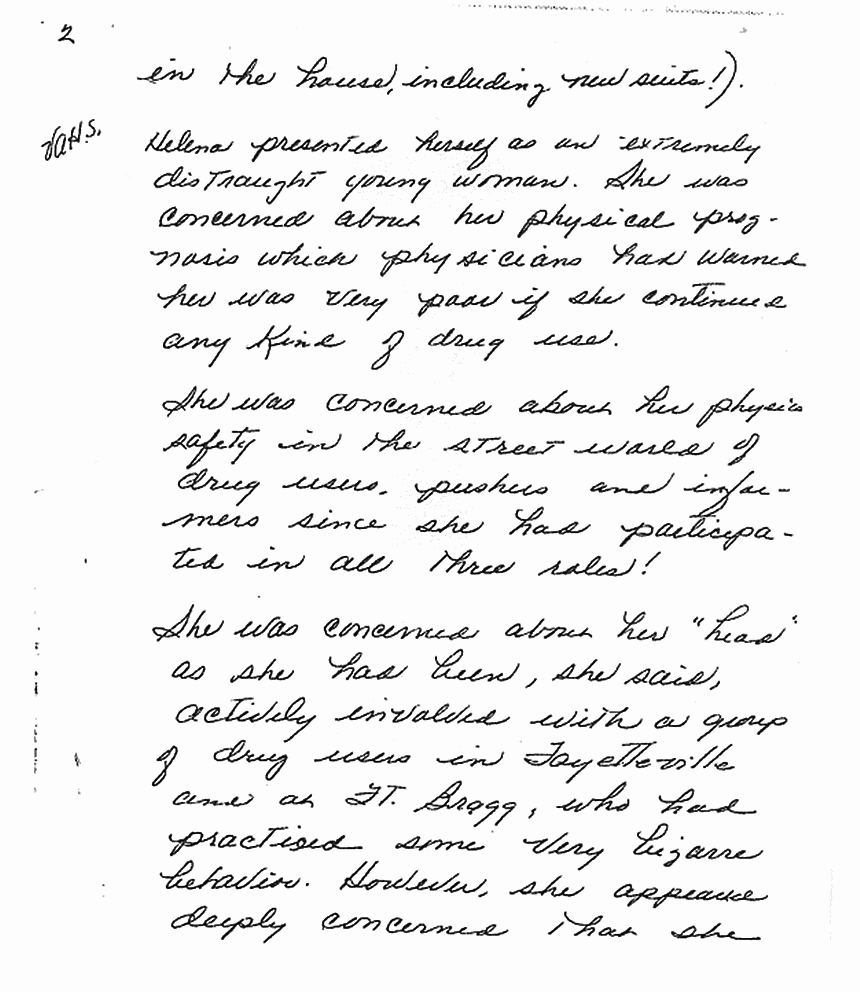 2
in the house, including new suits!).
Helena presented herself as an extremely
distraught young woman. She was
concerned about her physical prog-
nosis which physicians had warned
her was very poor if she continued
any kind of drug use.
She was concerned about her physica
safety in the street world of
drug users, pushers and infor-
mers since she had participa-
ted in all three roles!
She was concerned about her "head"
as she had been, she said,
actively involved with a group
of drug users in Fayetteville
and at FT. Bragg, who had
practised some very bizarre
behavior. However, she appeared
deeply concerned that she